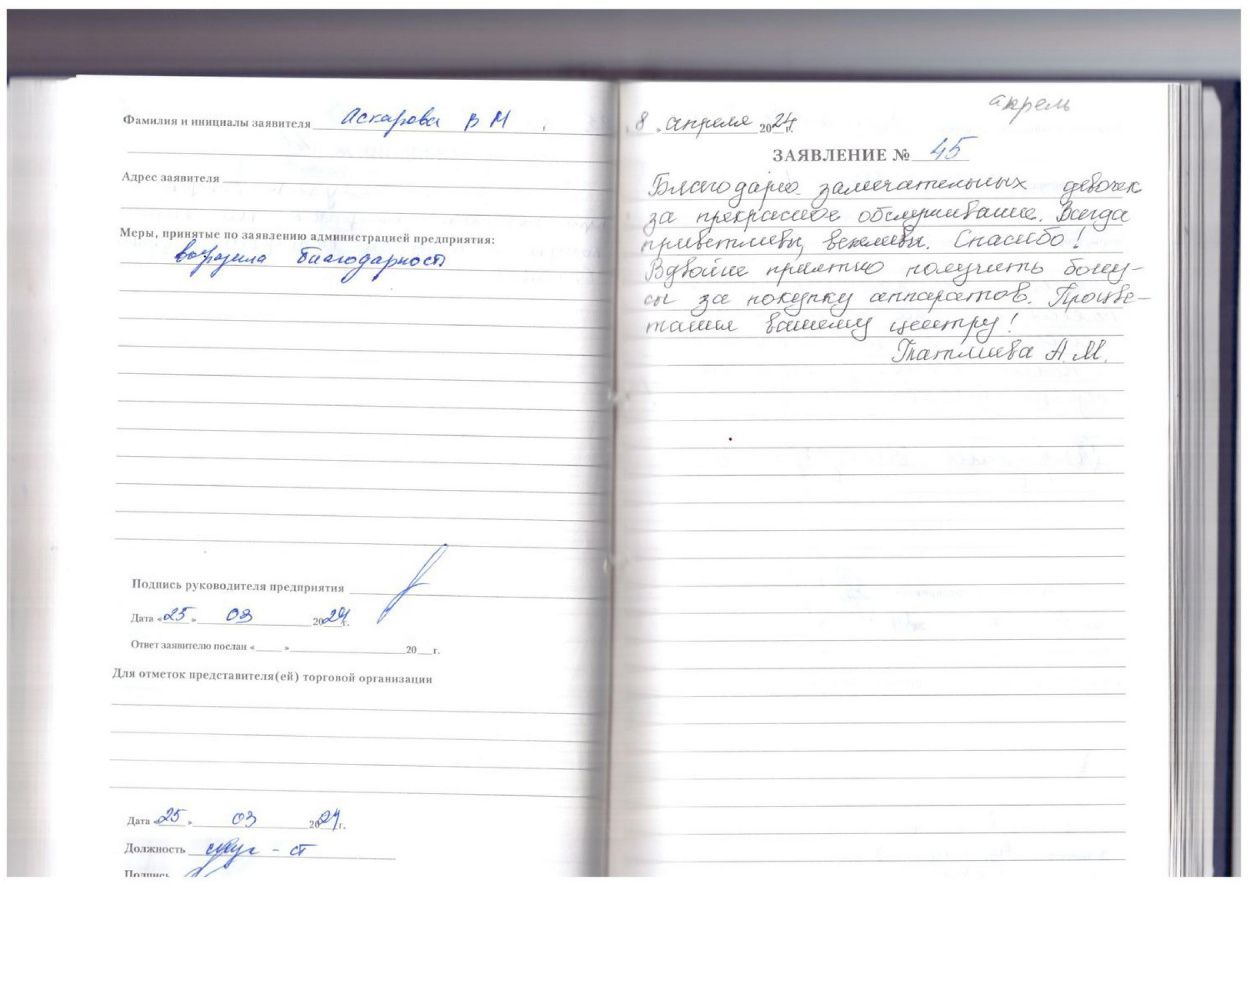 Фамилия и инициалы заявителя Аскарова В М
Адрес заявителя
Меры, принятые по заявлению администрацией предприятия:
выразила благодарность
Подпись руководителя предприятия
Дата «25» 03 2024г.
Ответ заявителю послан « » 20 г.
Для отметок представителя(ей) торговой организации
Дата «25» 03 2024г.
Должность
Подпись
апрель
8 „ апреля 2024 г.
ЗАЯВЛЕНИЕ № 45
Благодарю замечательных девочек
за прекрасное обслуживание. Всегда
приветливы, вежливы. Спасибо!
Вдвойне приятно получить бону-
сы за покупку аппаратов. Процве-
тания вашему центру!
А.М.